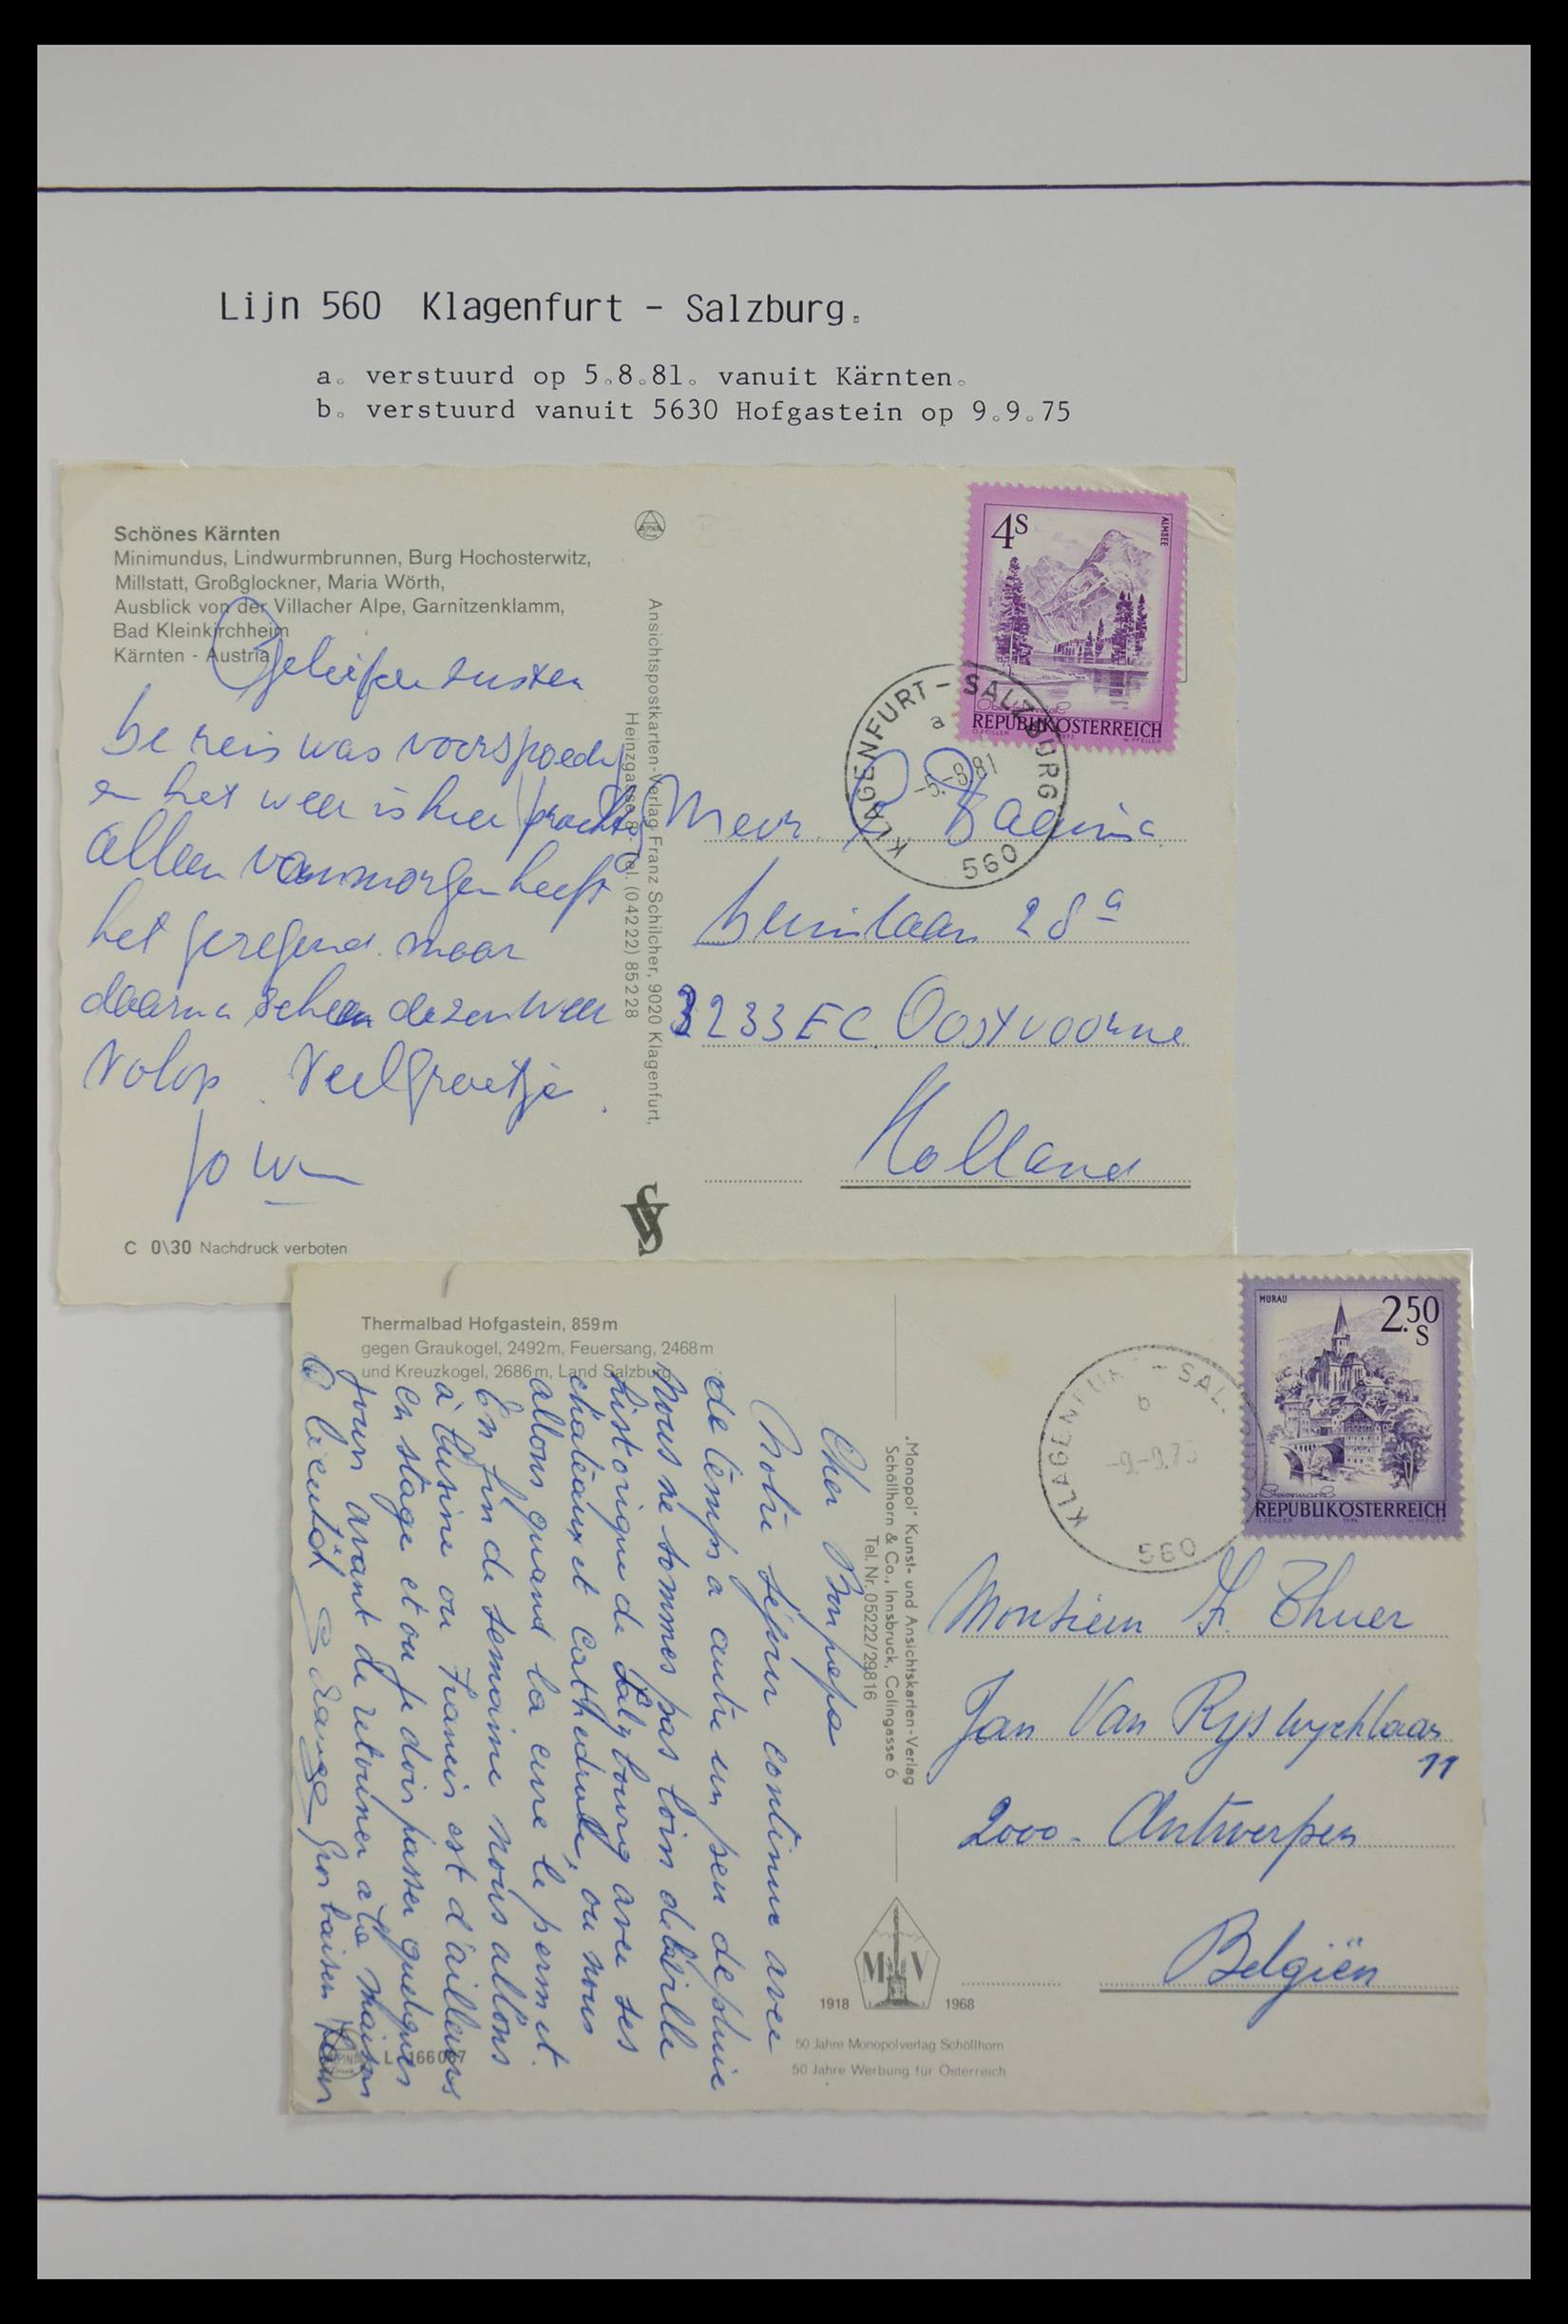 Lijn 560 Klagenfurt - Salzburg.
a. verstuurd op 5.8.81. vanuit Kärnten.
b. verstuurd vanuit 5630 Hofgastein op 9.9.75
Schönes Kärnten
Minimundus, Lindwurmbrunnen, Burg Hochosterwitz,
Millstatt, Großglockner, Maria Wörth,
Ausblick von der Villacher Alpe, Garnitzenklamm,
Bad Kleinkirchheim
Kärnten - Austria
De reis was voorspoedig
en het weer is hier prachtig
alleen vanmorgen heeft
het geregend. maar
daarna scheen de zon weer
volop. Veel Groetje
Jo
C 0\30 Nachdruck verboten
Ansichtspostkarten-Verlag Franz Schilcher, 9020 Klagenfurt,
Heinzgasse 8, Tel. (04222) 85228
4S
ALMSEE
REPUBLIK ÖSTERREICH
KLAGENFURT - SALZBURG
a
-5.-8.81
560
Mevr.
28a
3233 EC Oostvoorne
Holland
Thermalbad Hofgastein, 859m
gegen Graukogel, 2492m, Feuersang, 2468m
und Kreuzkogel, 2686m, Land Salzburg
Cher Bonpapa
Notre séjour continue avec
de temps a autre un peu de pluie
Nous ne sommes pas loin de la ville
historique de Salzbourg avec ses
châteaux et cathedrale, ou nous
allons quand la cure le permet.
En fin de semaine nous allons
à l'usine ou Francis est d'ailleurs
en stage et ou je dois passer quelques
jours avant de retourner a la maison
A bientôt Gros baisers
L 166 067
„Monopol" Kunst- und Ansichtskarten-Verlag
Schöllhorn & Co., Innsbruck, Colingasse 6
Tel. Nr. 05222/29816
MURAU
2.50 S
Steiermark
REPUBLIK ÖSTERREICH
KLAGENFUR - SAL
b
-9.-9.75
560
Monsieur F. Thuer
Jan Van Ryswycklaan
11
2000 - Antwerpen
Belgiën
M V
1918 1968
50 Jahre Monopolverlag Schöllhorn
50 Jahre Werbung für Österreich